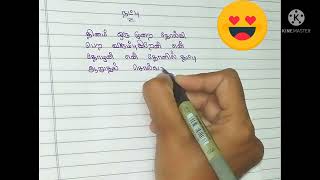 நட்பு
தினம் ஒரு முறை தோல்வி
பெற விரும்புகிறேன் என்
தோழன் என் தோளில் தட்டி
ஆறுதல் சொல்வ
KINEMASTER